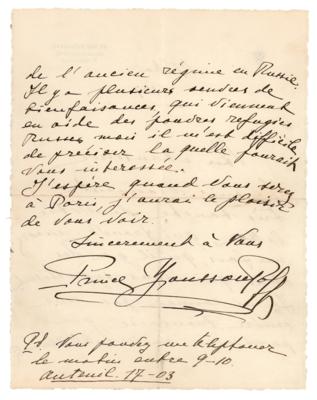 de l'ancien régime en Russie.
Il y a plusieurs
bienfaisances, qui viennent
en aide des pauvres refugiés
Russes, mais il m'est difficile
de préciser la quelle pourait
vous interessée.
J'espère quand Vous serez
à Paris, j'aurai le plaisir
de Vous voir.
Sincerement à Vous
Prince Youssoupoff
Ps. Vous pouvez me telephoner
le matin entre 9-10.
Auteuil. 17-03